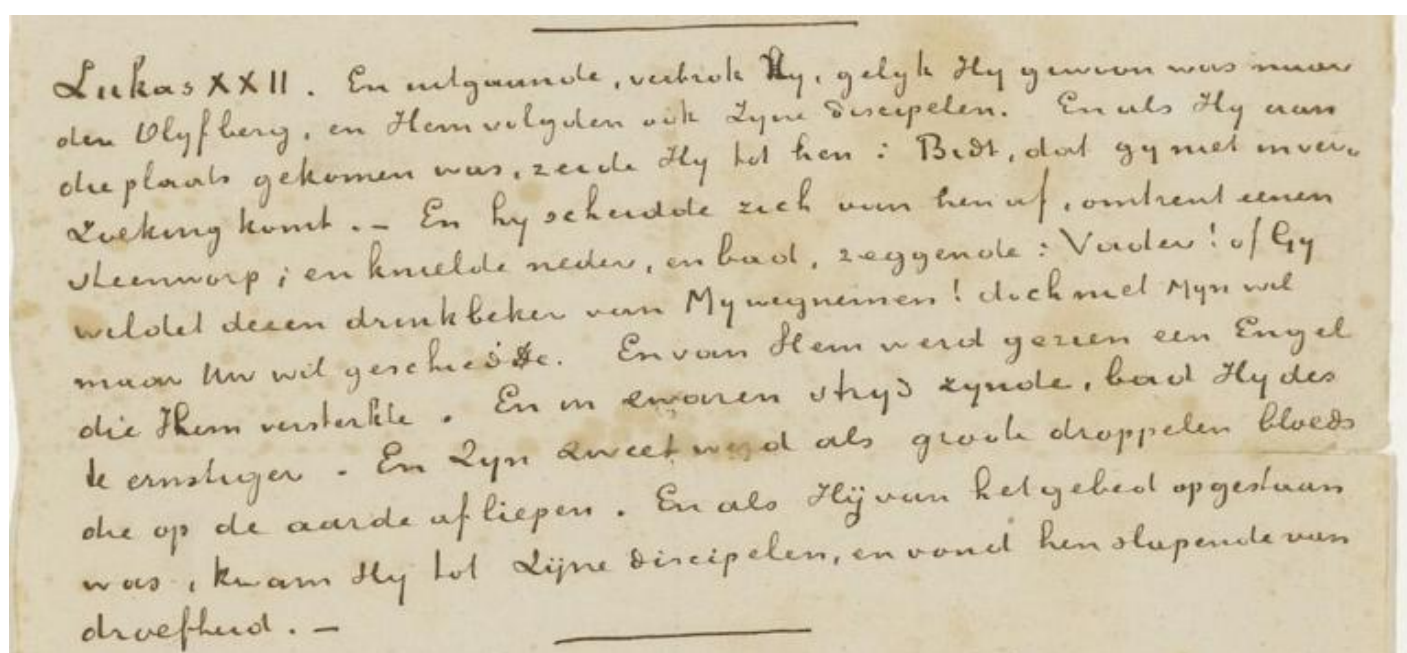 Lukas XXII. En uitgaande, vertrok Hy, gelyk Hy gewoon was naar
den Olyfberg, en Hem volgden ook Zyne discipelen. En als Hy aan
die plaats gekomen was, zeide Hy tot hen: Bidt, dat gy niet in ver-
zoeking komt. — En hy scheidde zich van hen af, omtrent eenen
steenworp; en knielde neder, en bad, zeggende: Vader! of Gy
wildet dezen drinkbeker van My wegnemen! doch niet Myn wil
maar Uw wil geschiedde. En van Hem werd gezien een Engel
die Hem versterkte. En in zwaren stryd zynde, bad Hy des
te ernstiger. En Zyn zweet werd als groote droppelen bloeds
die op de aarde afliepen. En als Hij van het gebed opgestaan
was, kwam Hy tot Zijne discipelen, en vond hen slapende van
droefheid. —